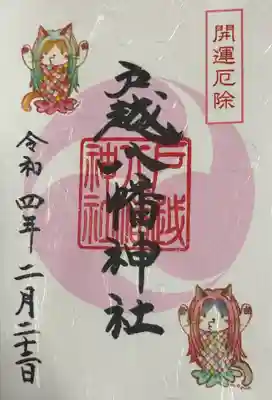 開運厄除
戸越八幡神社
戸越
八幡
神社
令和四年二月二十二日